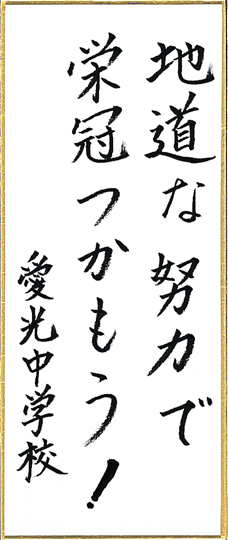 地道な努力で
栄冠つかもう!
愛光中学校